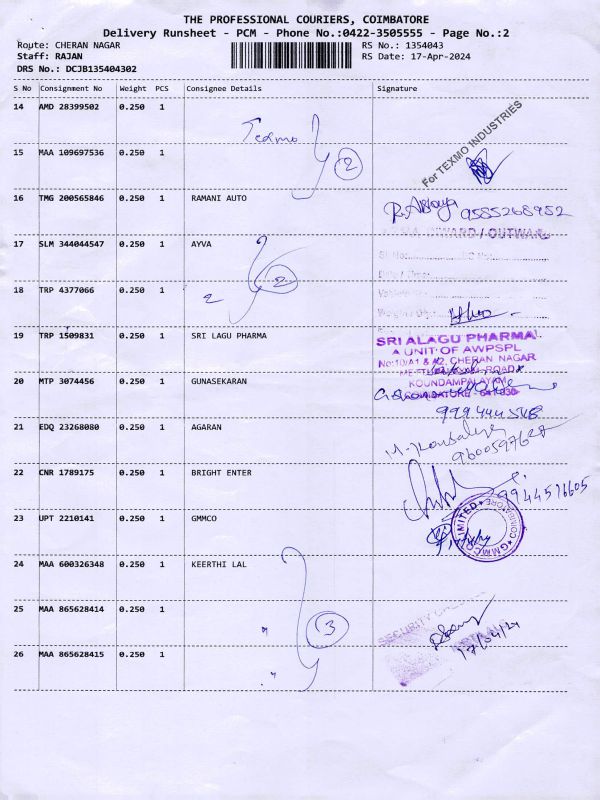 THE PROFESSIONAL COURIERS, COIMBATORE
Delivery Runsheet - PCM - Phone No.:0422-3505555 - Page No.:2
Route: CHERAN NAGAR RS No.: 1354043
Staff: RAJAN RS Date: 17-Apr-2024
DRS No.: DCJB135404302
S No Consignment No Weight PCS Consignee Details Signature
14 AMD 28399502 0.250 1
Texmo
For TEXMO INDUSTRIES
15 MAA 109697536 0.250 1
2
16 TMG 200565846 0.250 1 RAMANI AUTO
9585268952
17 SLM 344044547 0.250 1 AYVA
INWARD / OUTWARD
2
18 TRP 4377066 0.250 1
2
19 TRP 1509831 0.250 1 SRI LAGU PHARMA
SRI ALAGU PHARMA
A UNIT OF AWPSPL
No:10/A1 & A2, CHERAN NAGAR
METTUPALAYAM ROAD
KOUNDAMPALAYAM
COIMBATORE - 641 030
20 MTP 3074456 0.250 1 GUNASEKARAN
21 EDQ 23268080 0.250 1 AGARAN
9600597627
22 CNR 1789175 0.250 1 BRIGHT ENTER
9944576605
23 UPT 2210141 0.250 1 GMMCO
GMMCO LIMITED
COIMBATORE
24 MAA 600326348 0.250 1 KEERTHI LAL
25 MAA 865628414 0.250 1
3
"
SECURITY
17/04/24
26 MAA 865628415 0.250 1
"